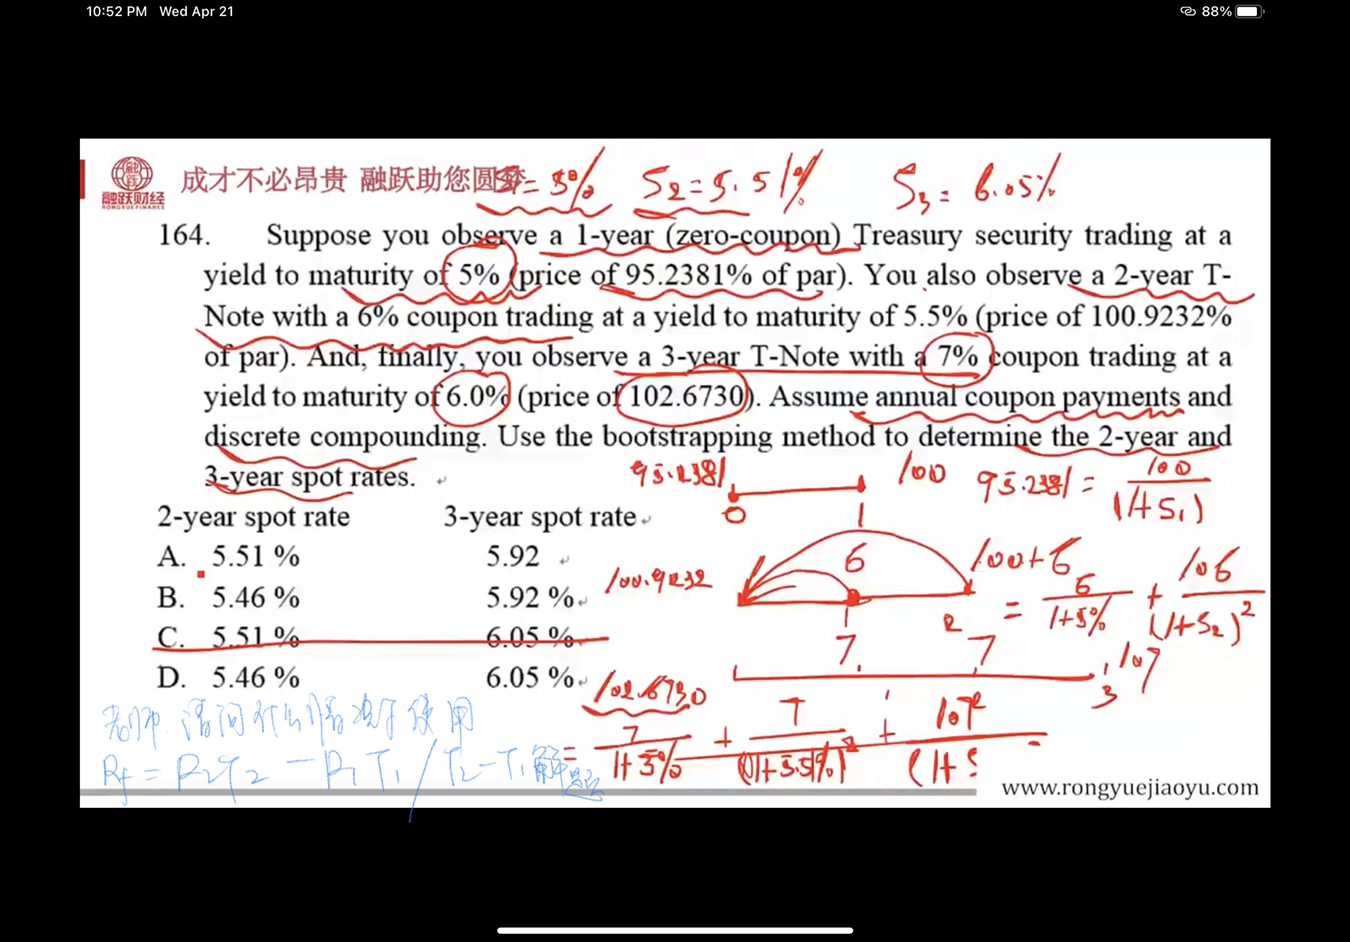 10:52 PM Wed Apr 21
88%
融跃财经
RONGYUEFINANCE
成才不必昂贵 融跃助您圆梦
S1 = 5% S2 = 5.51% S3 = 6.05%
164. Suppose you observe a 1-year (zero-coupon) Treasury security trading at a
yield to maturity of 5% (price of 95.2381% of par). You also observe a 2-year T-
Note with a 6% coupon trading at a yield to maturity of 5.5% (price of 100.9232%
of par). And, finally, you observe a 3-year T-Note with a 7% coupon trading at a
yield to maturity of 6.0% (price of 102.6730). Assume annual coupon payments and
discrete compounding. Use the bootstrapping method to determine the 2-year and
3-year spot rates.
95.2381 100 95.2381 = 100 / (1+S1)
0 1
2-year spot rate 3-year spot rate
A. 5.51 % 5.92
6 100+6
100.9232 = 6 / 1+5% + 106 / (1+S2)^2
1 2
B. 5.46 % 5.92 %
C. 5.51 % 6.05 %
7 7 107
3
D. 5.46 % 6.05 %
102.6730
= 7 / 1+5% + 7 / (1+5.51%)^2 + 107 / (1+S
老师 请问什么情况下使用
Rf = R2T2 - R1T1 / T2-T1 解题
www.rongyuejiaoyu.com